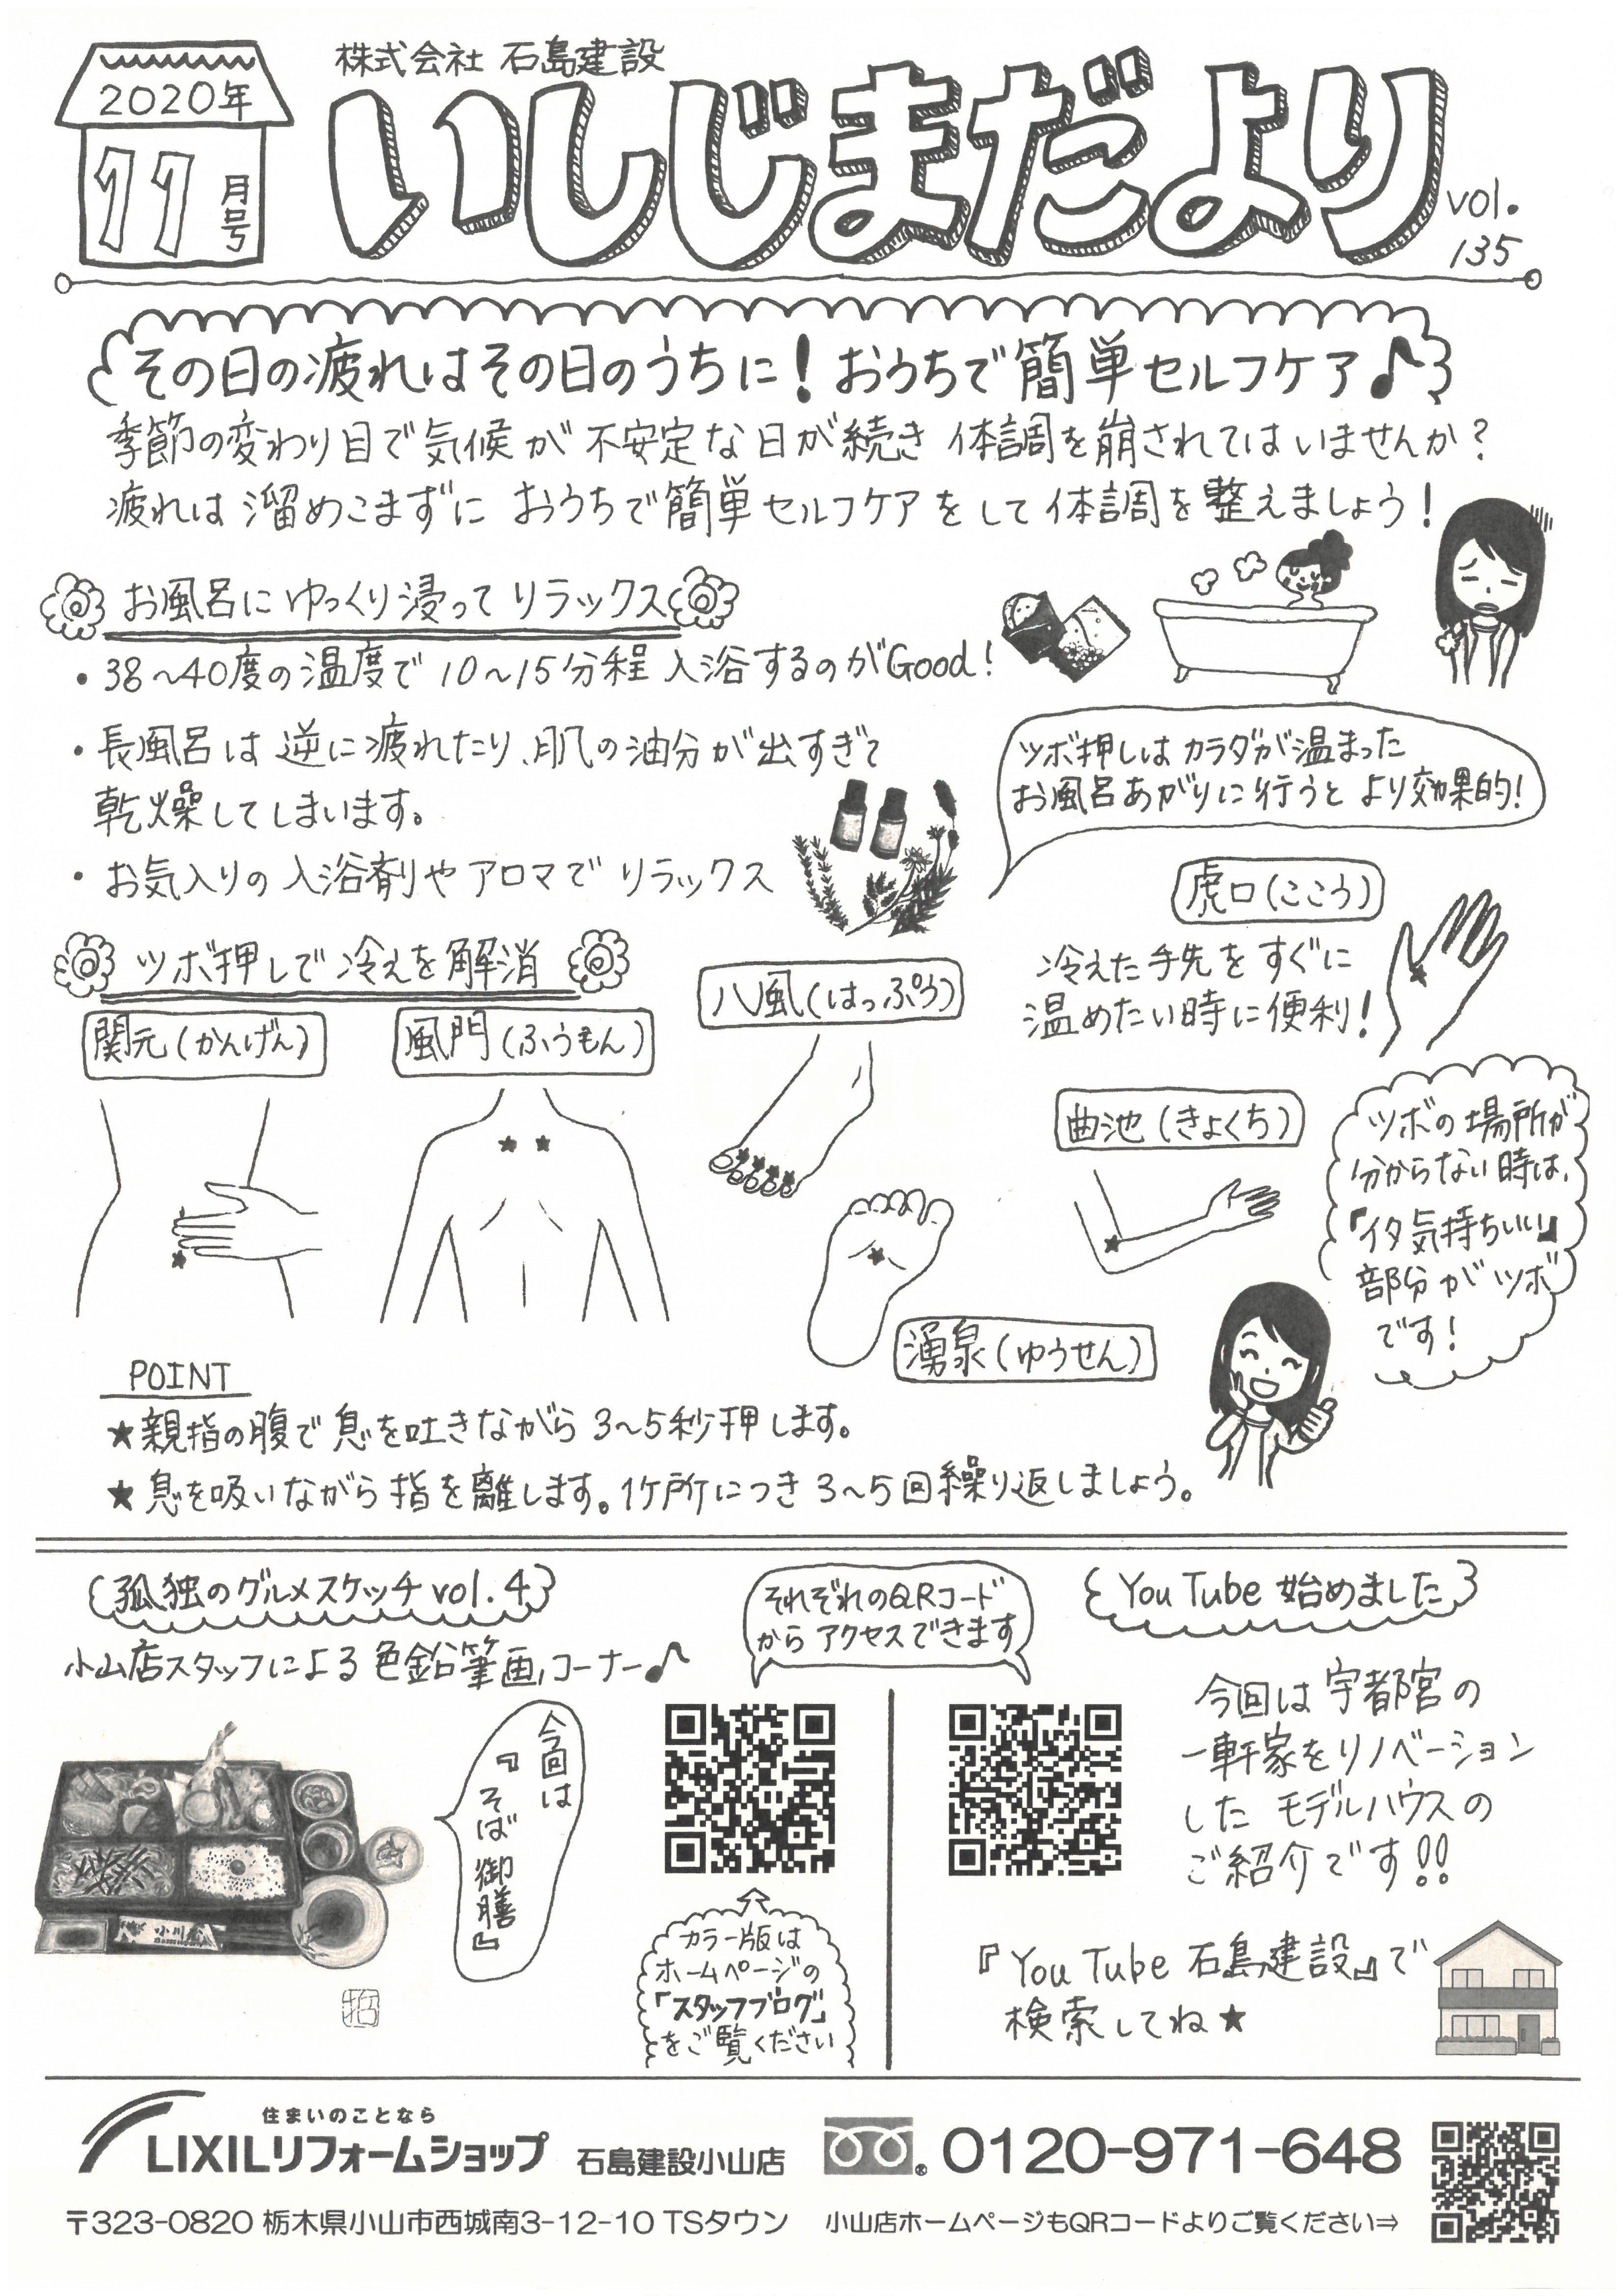 2020年
11月号
株式会社 石島建設
いしじまだより
vol.
135
その日の疲れはその日のうちに！おうちで簡単セルフケア♪
季節の変わり目で気候が不安定な日が続き 体調を崩されてはいませんか？
疲れは溜めこまずに おうちで簡単セルフケアをして体調を整えましょう！
お風呂にゆっくり浸ってリラックス
・38～40度の温度で10～15分程入浴するのがGood！
・長風呂は逆に疲れたり、肌の油分が出すぎて
乾燥してしまいます。
・お気入りの入浴剤やアロマでリラックス
ツボ押しはカラダが温まった
お風呂あがりに行うとより効果的！
ツボ押しで冷えを解消
関元（かんげん）
風門（ふうもん）
八風（はっぷう）
虎口（ここう）
冷えた手先をすぐに
温めたい時に便利！
曲池（きょくち）
湧泉（ゆうせん）
ツボの場所が
分からない時は、
『イタ気持ちいい』
部分がツボ
です！
POINT
★親指の腹で息を吐きながら3～5秒押します。
★息を吸いながら指を離します。1ケ所につき3～5回繰り返しましょう。
孤独のグルメスケッチvol.4
小山店スタッフによる色鉛筆画コーナー♪
今回は
『そば御膳』
それぞれのQRコード
からアクセスできます
カラー版は
ホームページの
「スタッフブログ」
をご覧ください
You Tube 始めました
今回は宇都宮の
一軒家をリノベーション
した モデルハウスの
ご紹介です!!
『You Tube 石島建設』で
検索してね★
住まいのことなら
LIXILリフォームショップ 石島建設小山店
0120-971-648
〒323-0820 栃木県小山市西城南3-12-10 TSタウン
小山店ホームページもQRコードよりご覧ください⇒